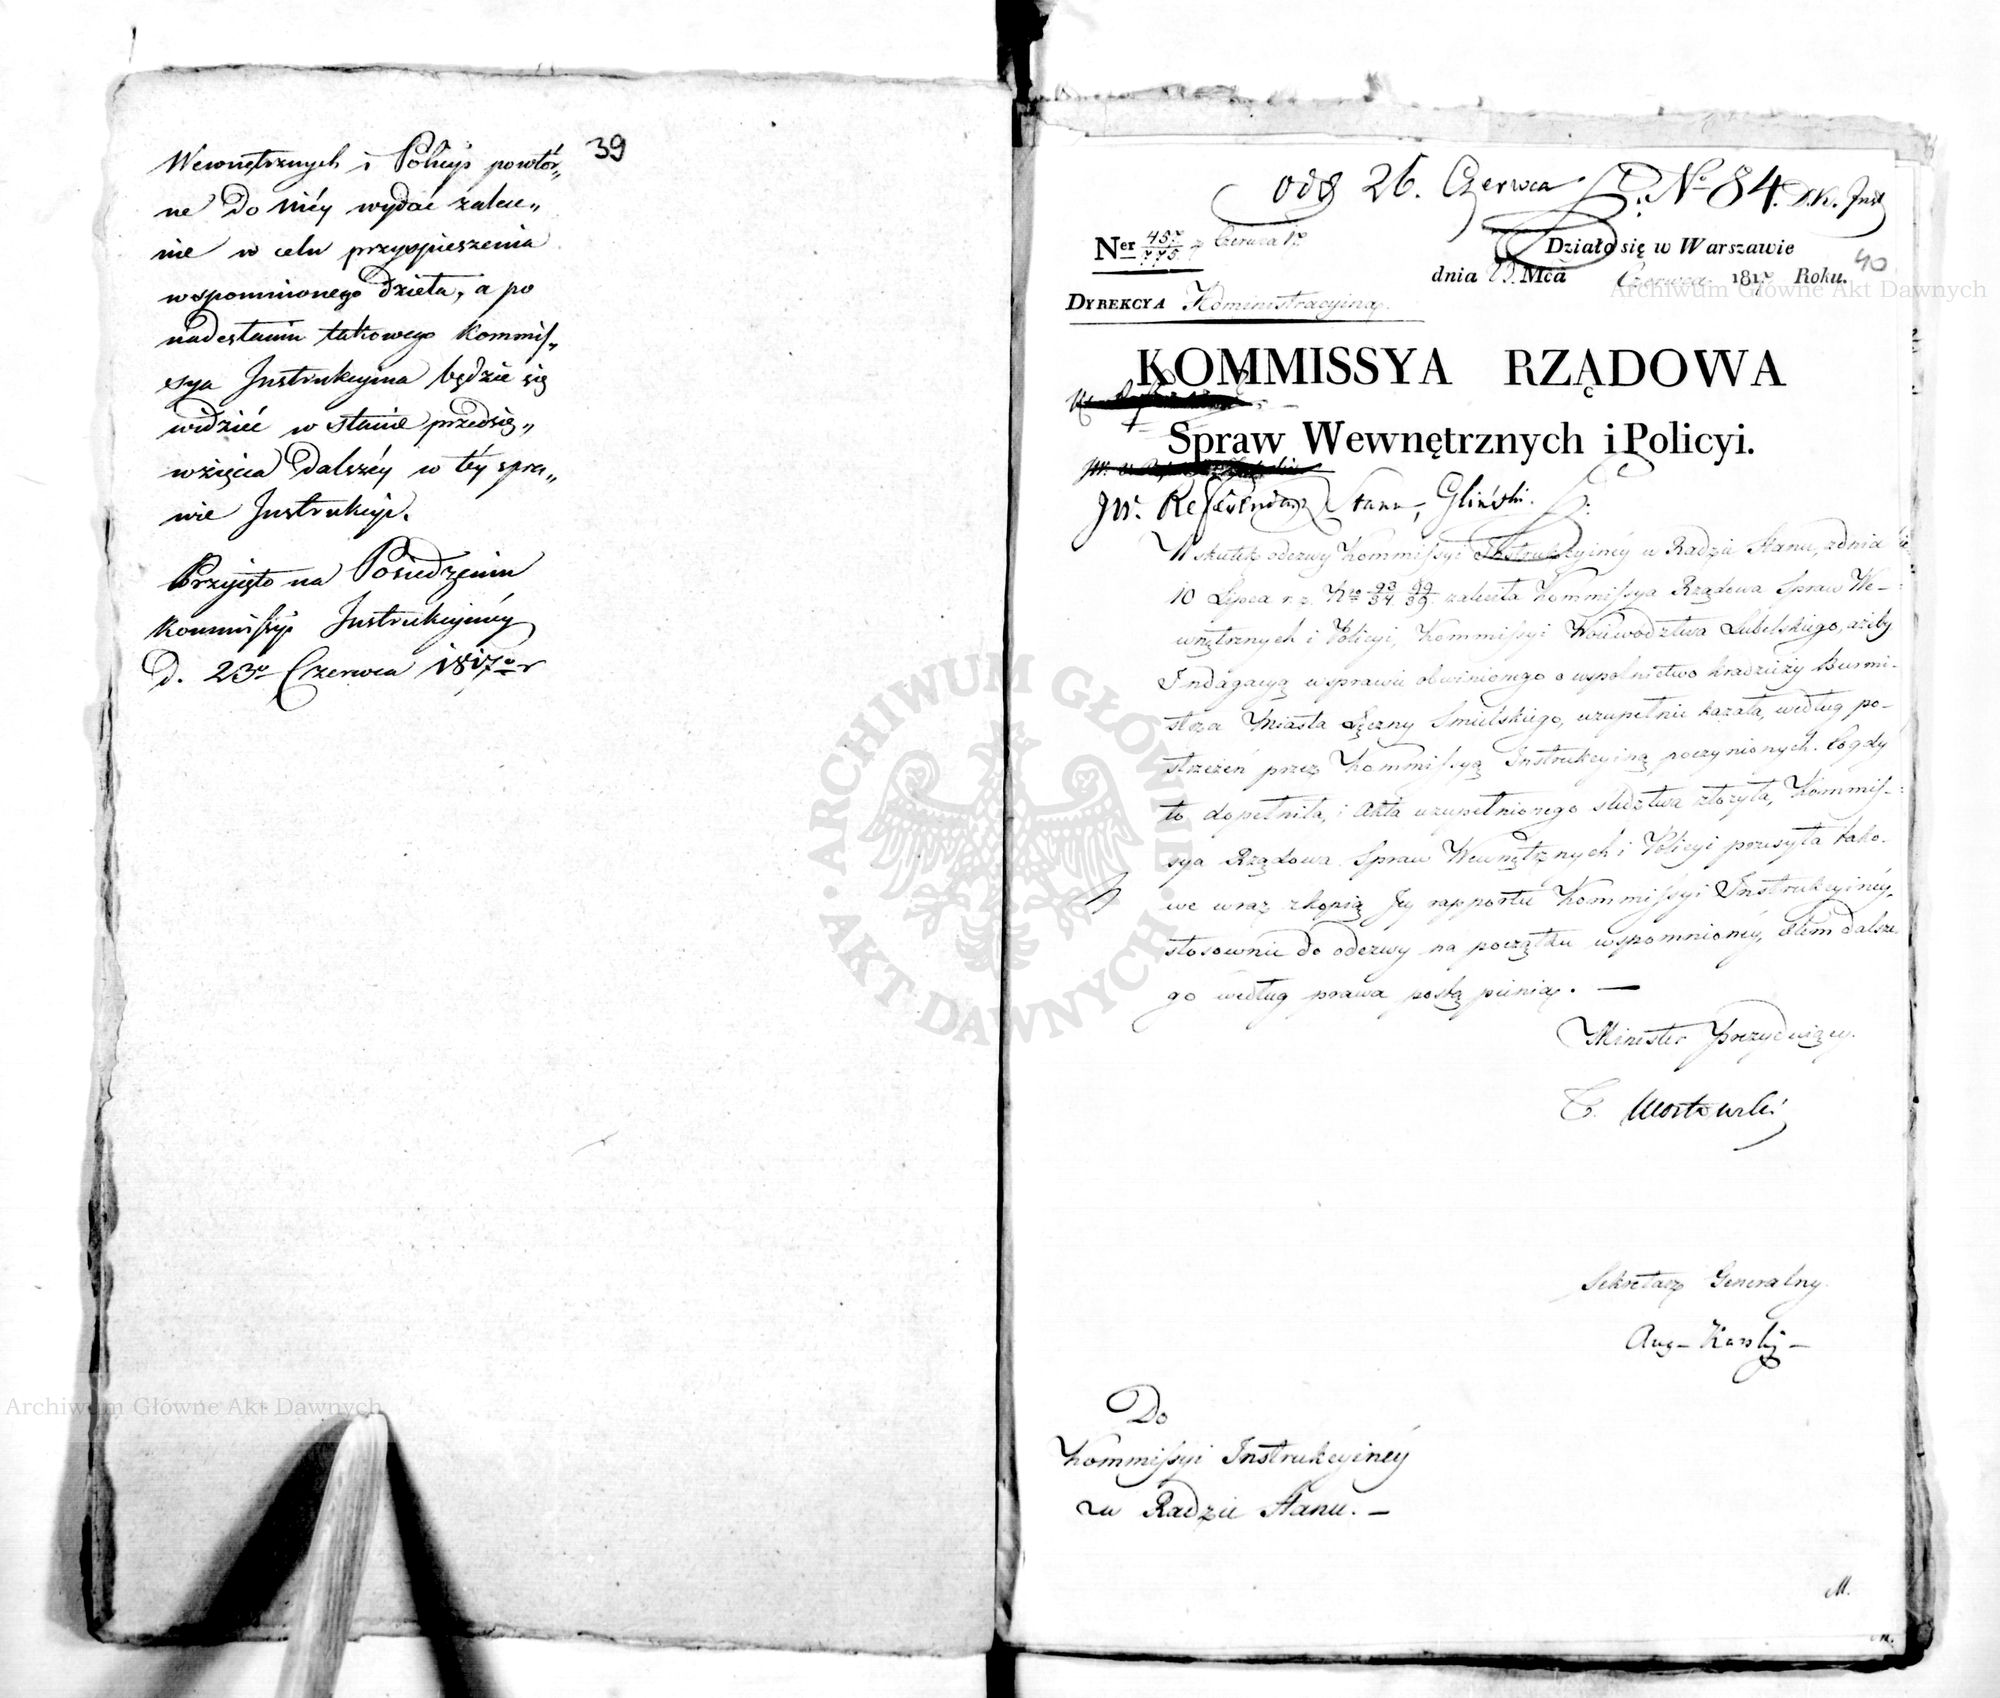 39
Wewnętrznych i Policyi powtór„
ne do niéy wydać zalece„
nie w celu przyspieszenia
wspomnionego dzieła, a po
nadesłaniu takowego Kommis„
sya Instrukcyina będzie się
widzieć w stanie przedsię„
wzięcia dalszéy w téy spra„
wie Instrukcyi.
Przyięto na Posiedzeniu
Kommissyi Instrukcyinéy
D. 23º Czerwca 1817º r
od 26. Czerwca No 84. D.K. Inst
Ner 457/775 z Czerwca 17
Działo się w Warszawie
dnia Mca Czerwca 1817 Roku.
40
DYREKCYA Administracyina.
KOMMISSYA RZĄDOWA
Spraw Wewnętrznych i Policyi.
JW. Referendarz Stanu, Gliński.
W skutek odezwy Kommissyi Instrukcyinéy w Radzie Stanu, z dnia
10 Lipca r. z. Nro 93/34 89/39 zaleciła Kommissya Rządowa Spraw We-
wnętrznych i Policyi, Kommissyi Woiewództwa Lubelskiego, ażeby
Indagacyą w sprawie obwinionego o wspolnictwo kradzieży Burmi-
strza Miasta Łęczny Smielskiego, uzupełnić kazała, według po-
strzeżeń przez Kommissyą Instrukcyiną poczynionych. Co gdy
to dopełniła, i Akta uzupełnionego sledztwa złożyła, Kommis-
sya Rządowa Spraw Wewnętrznych i Policyi przesyła tako-
we wraz z kopią Jey rapportu Kommissyi Instrukcyinéy,
stosownie do odezwy na początku wspomnionéy, celem dalsze-
go według prawa postąpienia. —
Minister Prezyduiący.
T. Mostowski
Sekretarz Generalny.
Aug- Karski -
Do
Kommissyi Instrukcyinéy
w Radzie Stanu. —
M.
ARCHIWUM GŁÓWNE AKT DAWNYCH
Archiwum Główne Akt Dawnych
Archiwum Główne Akt Dawnych